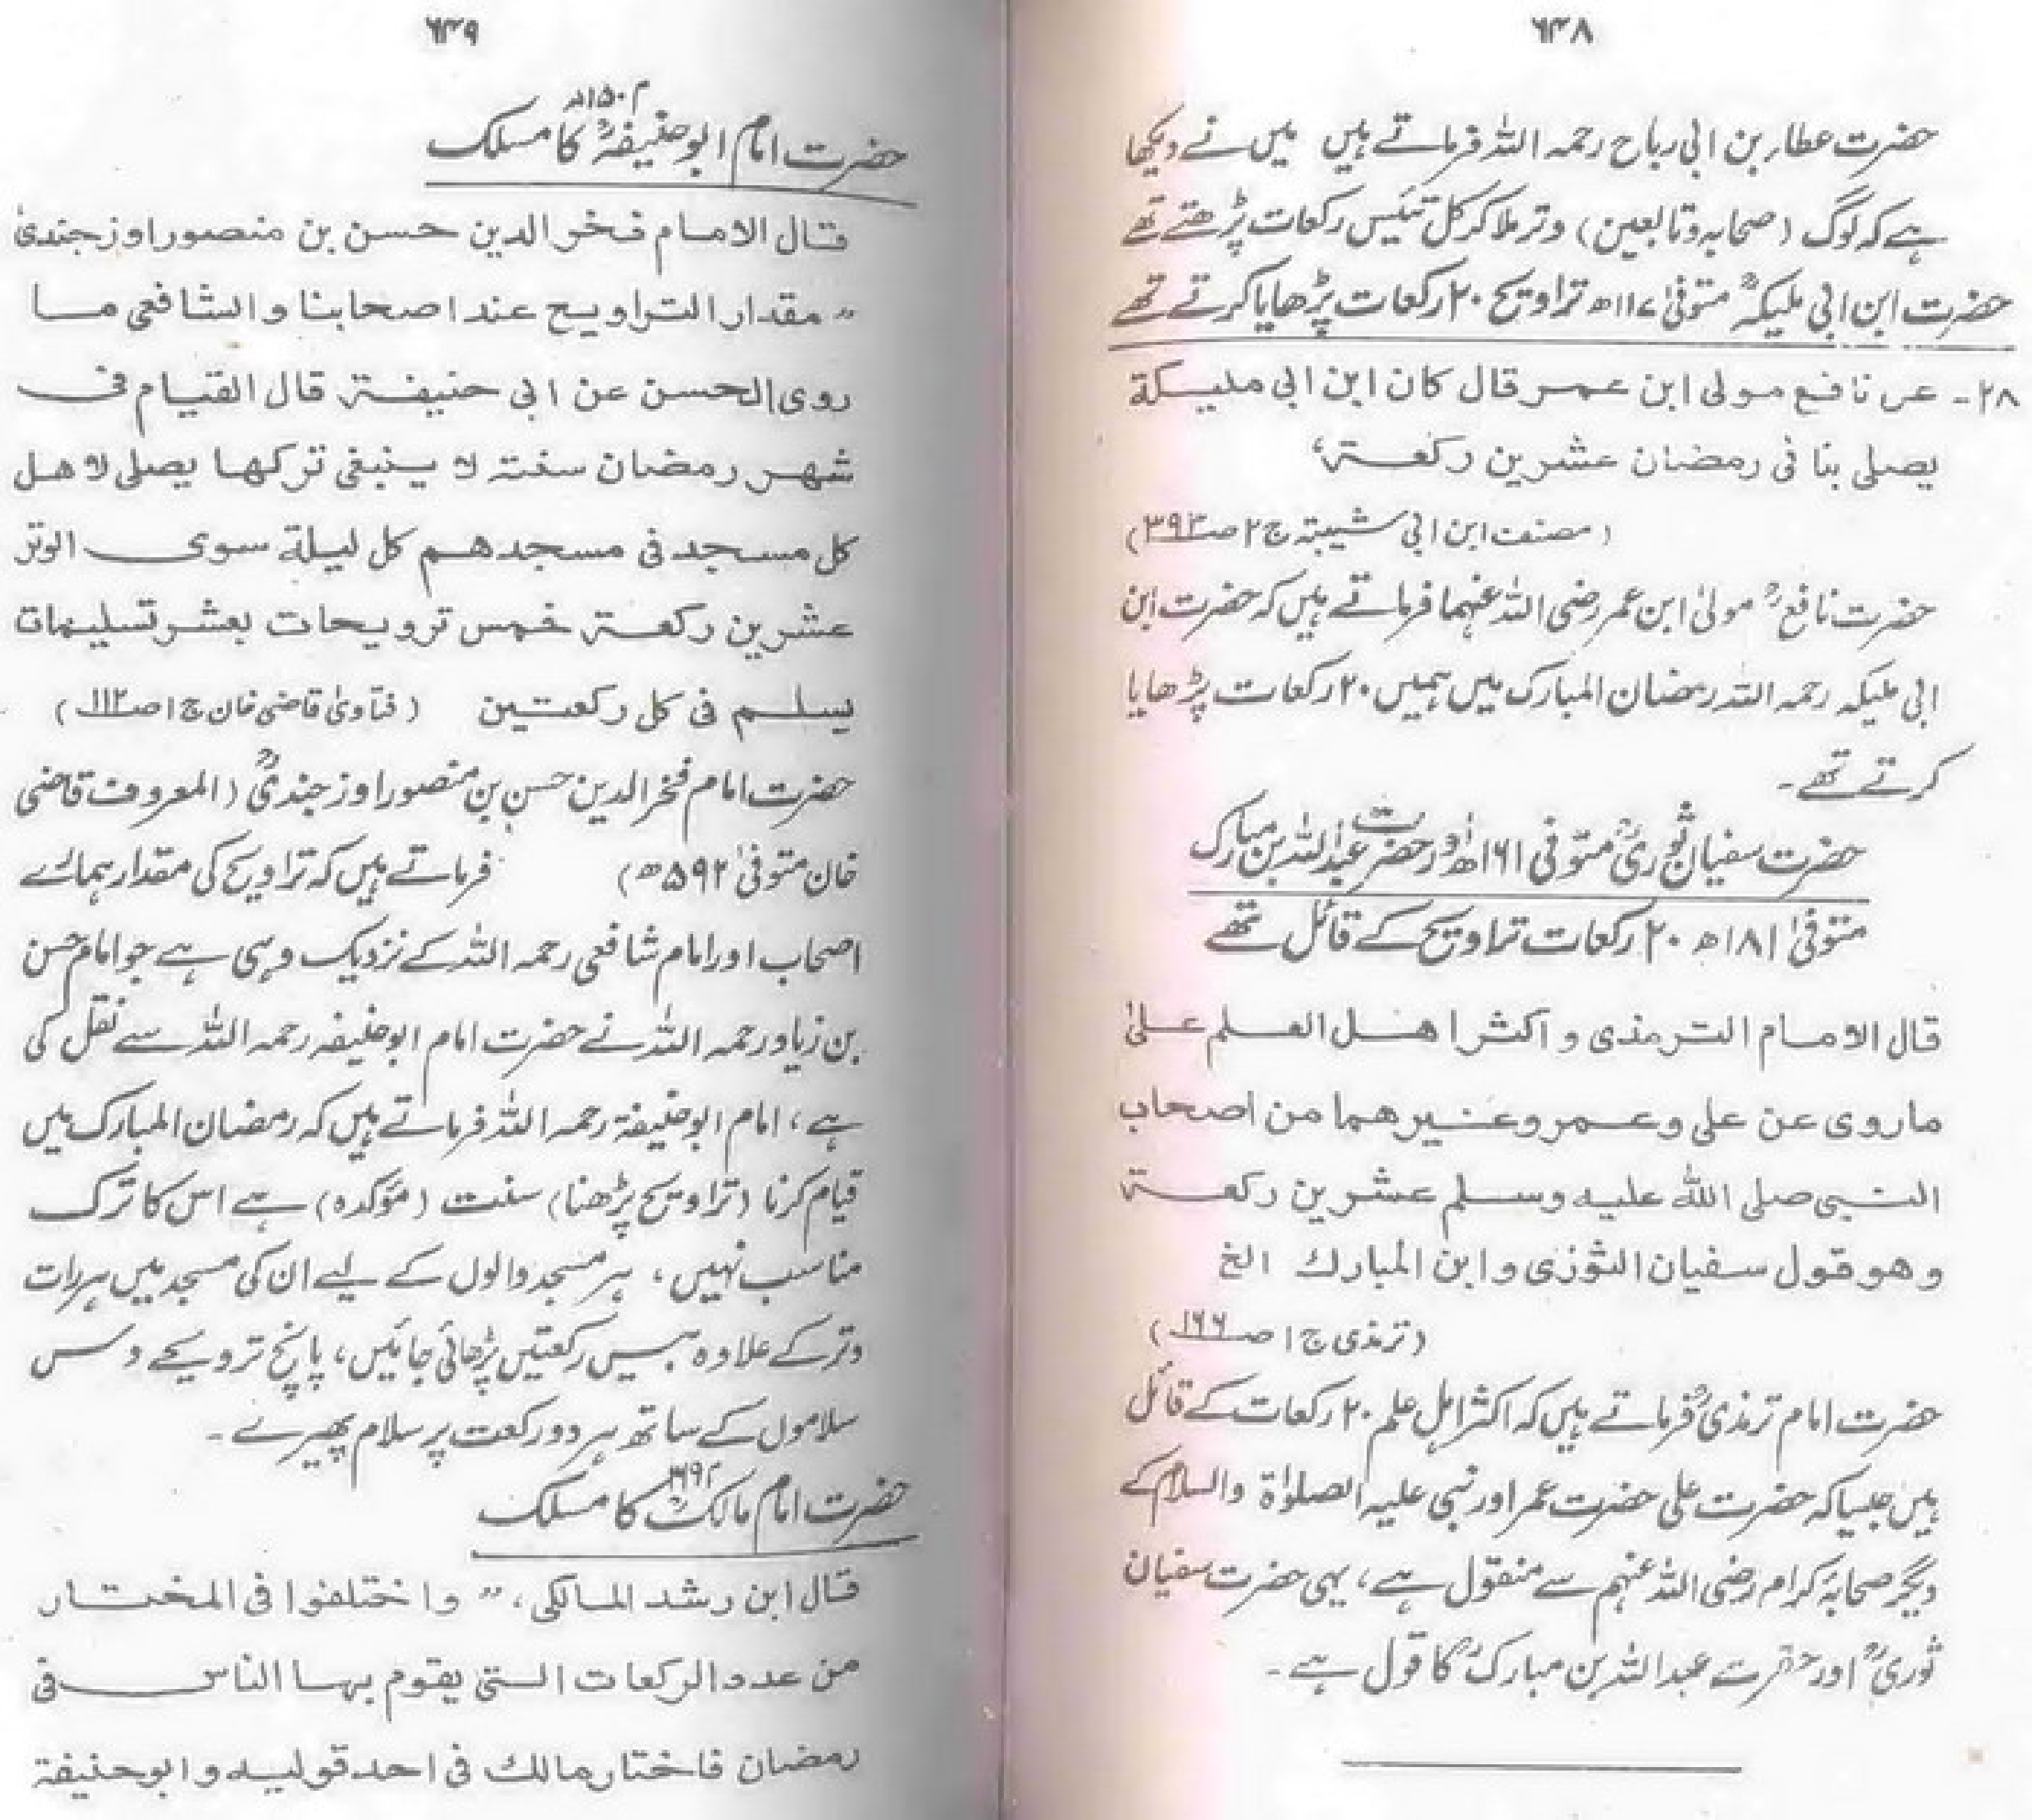 ۶۴۸
حضرت عطاء بن ابی رباح رحمہ اللہ فرماتے ہیں میں نے دیکھا
ہے کہ لوگ (صحابہ و تابعین) وتر ملا کر کل تئیس رکعات پڑھتے تھے
حضرت ابن ابی ملیکہؒ متوفیٰ ۱۱۷ھ تراویح ۲۰ رکعات پڑھایا کرتے تھے
۲۸۔ عن نافع مولی ابن عمر قال کان ابن ابی ملیکة
یصلی بنا فی رمضان عشرین رکعة،
(مصنف ابن ابی شیبة ج ۲ صـ ۳۹۳)
حضرت نافعؒ مولیٰ ابن عمر رضی اللہ عنہما فرماتے ہیں کہ حضرت ابن
ابی ملیکہ رحمہ اللہ رمضان المبارک میں ہمیں ۲۰ رکعات پڑھایا
کرتے تھے۔
حضرت سفیان ثوریؒ متوفی ۱۶۱ھ اور حضرت عبداللہ بن مبارک
متوفیٰ ۱۸۱ھ ۲۰ رکعات تراویح کے قائل تھے
قال الامام الترمذی و اکثر اهل العلم علیٰ
ما روی عن علی و عمر و غیرهما من اصحاب
النبی صلی اللہ علیه وسلم عشرین رکعة
وهو قول سفیان الثوری و ابن المبارك الخ
(ترمذی ج ۱ صـ ۱۶۶)
حضرت امام ترمذیؒ فرماتے ہیں کہ اکثر اہل علم ۲۰ رکعات کے قائل
ہیں جیسا کہ حضرت علی حضرت عمر اور نبی علیہ الصلوٰۃ والسلام کے
دیگر صحابۂ کرام رضی اللہ عنہم سے منقول ہے، یہی حضرت سفیان
ثوریؒ اور حضرت عبداللہ بن مبارکؒ کا قول ہے۔
۶۴۹
حضرت امام ابو حنیفہؒ م ۱۵۰ھ کا مسلک
قال الامام فخر الدین حسن بن منصور اوزجندیٰ
"مقدار التراویح عند اصحابنا والشافعی ما
روی الحسن عن ابی حنیفة قال القیام فی
شهر رمضان سنة لا ینبغی ترکها یصلی لاهل
کل مسجد فی مسجدهم کل لیلة سوی الوتر
عشرین رکعة خمس ترویحات بعشر تسلیمات
یسلم فی کل رکعتین (فتاویٰ قاضی خان ج ۱ صـ ۱۱۲)
حضرت امام فخر الدین حسن بن منصور اوزجندیؒ (المعروف قاضی
خان متوفیٰ ۵۹۲ھ) فرماتے ہیں کہ تراویح کی مقدار ہمارے
اصحاب اور امام شافعی رحمہ اللہ کے نزدیک وہی ہے جو امام حسن
بن زیاد رحمہ اللہ نے حضرت امام ابو حنیفہ رحمہ اللہ سے نقل کی
ہے، امام ابو حنیفۃ رحمہ اللہ فرماتے ہیں کہ رمضان المبارک میں
قیام کرنا (تراویح پڑھنا) سنت (مؤکدہ) ہے اس کا ترک
مناسب نہیں، ہر مسجد والوں کے لیے ان کی مسجد میں ہر رات
وتر کے علاوہ بیس رکعتیں پڑھائی جائیں، پانچ ترویحے دس
سلاموں کے ساتھ ہر دو رکعت پر سلام پھیرے۔
حضرت امام مالکؒ کا مسلک
قال ابن رشد المالکی، "واختلفوا فی المختار
من عدد الرکعات التی یقوم بها الناس فی
رمضان فاختار مالك فی احد قولیه و ابو حنیفة